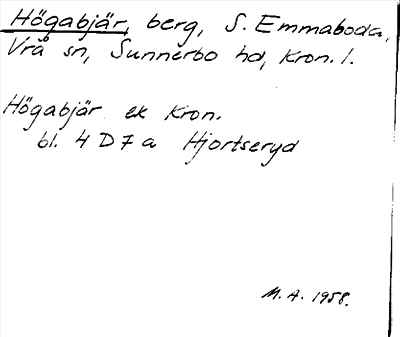 Högabjär, berg, S. Emmaboda,
Vrå sn, Sunnerbo hd, Kron. l.
Högabjär ek Kron.
bl. 4 D 7 a Hjortseryd
M. A. 1958.